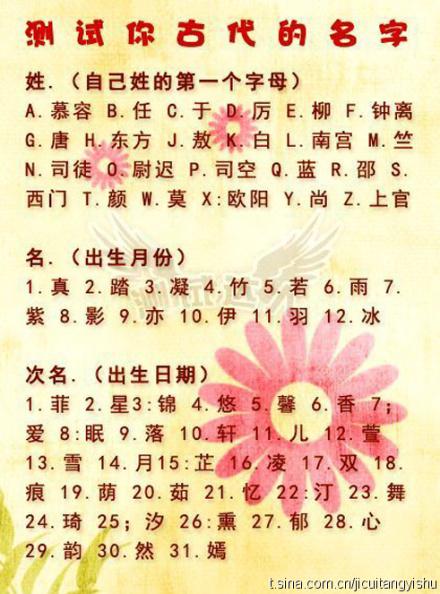 测试你古代的名字
姓.（自己姓的第一个字母）
A.慕容 B.任 C.于 D.厉 E.柳 F.钟离
G.唐 H.东方 J.敖 K.白 L.南宫 M.竺
N.司徒 O.尉迟 P.司空 Q.蓝 R.邵 S.
西门 T.颜 W.莫 X:欧阳 Y.尚 Z.上官
名.（出生月份）
1.真 2.踏 3.凝 4.竹 5.若 6.雨 7.
紫 8.影 9.亦 10.伊 11.羽 12.冰
次名.（出生日期）
1.菲 2.星3:锦 4.悠 5.馨 6.香 7;
爱 8:眠 9.落 10.轩 11.儿 12.萱
13.雪 14.月15:芷 16.凌 17.双 18.
痕 19.荫 20.茹 21.忆 22:汀 23.舞
24.琦 25；汐 26:熏 27.郁 28.心
29.韵 30.然 31.嫣
t.sina.com.cn/jicuitangyishu